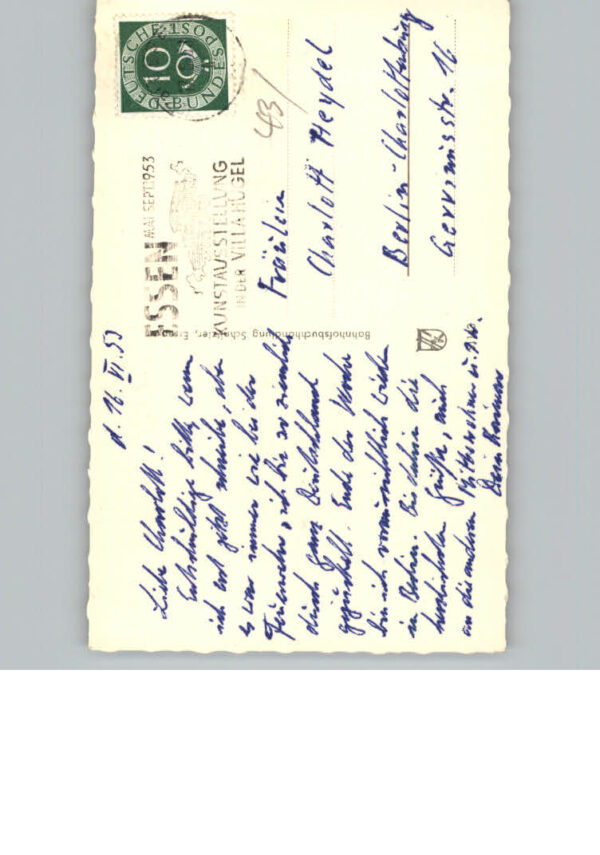 d. 16. VI. 53
Liebe Charlott!
Entschuldige bitte, wenn
ich erst jetzt schreibe, aber
es war immer wie bei der
Feuerwehr, ich bin so ziemlich
durch ganz Deutschland
gegondelt. Ende der Woche
bin ich voraussichtlich wieder
in Berlin. Bis dahin die
herzlichsten Grüße, auch
an die anderen Mitbewohner
Dein
DEUTSCHE BUNDESPOST
10
ESSEN MAI-SEPT. 1953
KUNSTAUSSTELLUNG
IN DER VILLA HÜGEL
43/
Fräulein
Charlott Heydel
Berlin-Charlottenburg
Gervinusstr. 16
Bahnhofsbuchhandlung